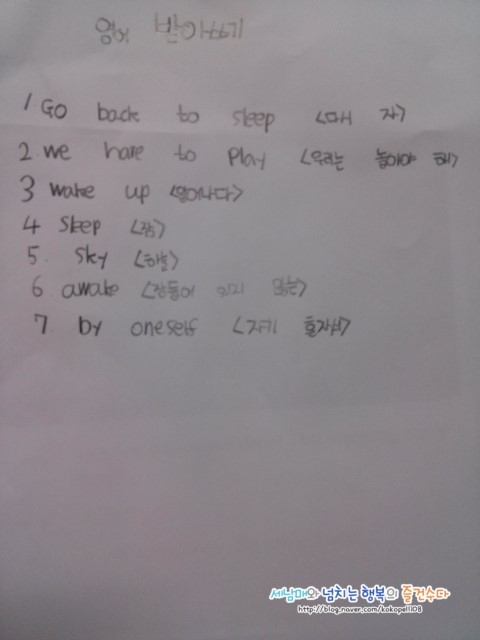 영어 받아쓰기
1 Go back to sleep <더 자>
2. we have to play <우리는 놀아야 해>
3 wake up <일어나다>
4 sleep <잠>
5. sky <하늘>
6 awake <잠들어 있지 않은>
7. by oneself <자기 혼자서>
세남매와 넘치는 행복의 즐건수다
http://blog.naver.com/kokopelli08